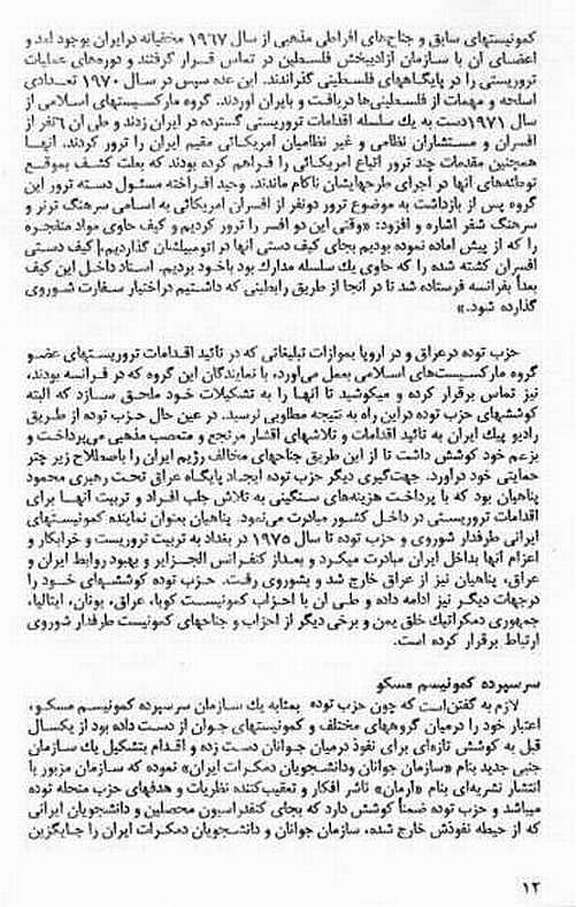 کمونیستهای سابق و جناح‌های افراطی مذهبی از سال ۱۹٦۷ مخفیانه درایران بوجود آمد و
اعضای آن با سازمان آزادیبخش فلسطین در تماس قرار گرفتند و دوره‌های عملیات
تروریستی را در پایگاههای فلسطینی گذراندند. این عده سپس در سال ۱۹۷۰ تعدادی
اسلحه و مهمات از فلسطینی‌ها دریافت و بایران آوردند. گروه مارکسیستهای اسلامی از
سال ۱۹۷۱دست به یك سلسله اقدامات تروریستی گسترده در ایران زدند و طی آن ٦نفر از
افسران و مستشاران نظامی و غیر نظامیان آمریکائی مقیم ایران را ترور کردند. آنها
همچنین مقدمات چند ترور اتباع آمریکائی را فراهم کرده بودند که بعلت کشف بموقع
توطئه‌های آنها در اجرای طرحهایشان ناکام ماندند. وحید افراخته مسئول دسته ترور این
گروه پس از بازداشت به موضوع ترور دونفر از افسران آمریکائی به اسامی سرهنگ ترنر و
سرهنگ شفر اشاره و افزود: «وقتی این دو افسر را ترور کردیم و کیف حاوی مواد منفجره
را که از پیش آماده نموده بودیم بجای کیف دستی آنها در اتومبیلشان گذاردیم، کیف دستی
افسران کشته شده را که حاوی یك سلسله مدارك بود باخود بردیم. اسناد داخل این کیف
بعداً بفرانسه فرستاده شد تا در آنجا از طریق رابطینی که داشتیم دراختیار سفارت شوروی
گذارده شود.»
حزب توده درعراق و در اروپا بموازات تبلیغاتی که در تائید اقدامات تروریستهای عضو
گروه مارکسیست‌های اسلامی بعمل می‌آورد، با نمایندگان این گروه که در فرانسه بودند،
نیز تماس برقرار کرده و میکوشید تا آنها را به تشکیلات خود ملحق سازد که البته
کوششهای حزب توده دراین راه به نتیجه مطلوبی نرسید. در عین حال حزب توده از طریق
رادیو پیك ایران به تائید اقدامات و تلاشهای اقشار مرتجع و متعصب مذهبی می‌پرداخت و
بزعم خود کوشش داشت تا از این طریق جناحهای مخالف رژیم ایران را باصطلاح زیر چتر
حمایتی خود درآورد. جهت‌گیری دیگر حزب توده ایجاد پایگاه عراق تحت رهبری محمود
پناهیان بود که با پرداخت هزینه‌های سنگینی به تلاش جلب افراد و تربیت آنها برای
اقدامات تروریستی در داخل کشور مبادرت می‌نمود. پناهیان بعنوان نماینده کمونیستهای
ایرانی طرفدار شوروی و حزب توده تا سال ۱۹۷۵ در بغداد به تربیت تروریست و خرابکار و
اعزام آنها بداخل ایران مبادرت میکرد و بعداز کنفرانس الجزایر و بهبود روابط ایران و
عراق، پناهیان نیز از عراق خارج شد و بشوروی رفت. حزب توده کوششهای خود را
درجهات دیگر نیز ادامه داده و طی آن با احزاب کمونیست کوبا، عراق، یونان، ایتالیا،
جمهوری دمکراتیك خلق یمن و برخی دیگر از احزاب و جناحهای کمونیست طرفدار شوروی
ارتباط برقرار کرده است.
سرسپرده کمونیسم مسکو
لازم به گفتن‌است که چون حزب توده بمثابه یك سازمان سرسپرده کمونیسم مسکو،
اعتبار خود را درمیان گروههای مختلف و کمونیستهای جوان از دست داده بود از یکسال
قبل به کوشش تازه‌ای برای نفوذ درمیان جوانان دست زده و اقدام بتشکیل یك سازمان
جنبی جدید بنام «سازمان جوانان ودانشجویان دمکرات ایران» نموده که سازمان مزبور با
انتشار نشریه‌ای بنام «آرمان» ناشر افکار و تعقیب‌کننده نظریات و هدفهای حزب منحله توده
میباشد و حزب توده ضمناً کوشش دارد که بجای کنفدراسیون محصلین و دانشجویان ایرانی
که از حیطه نفوذش خارج شده، سازمان جوانان و دانشجویان دمکرات ایران را جایگزین
۱۲